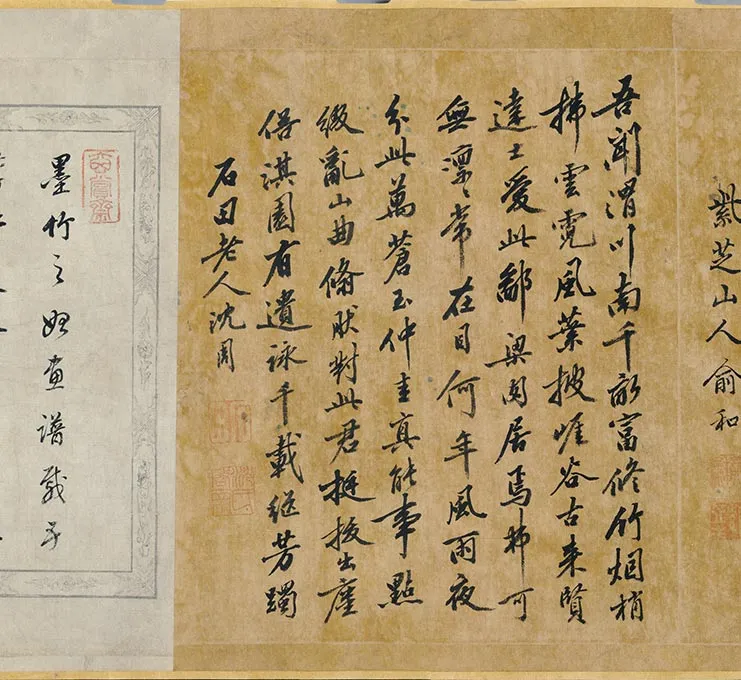 紫芝山人俞和
吾聞渭川南千畝富修竹烟梢
拂雲霓風葉披崖谷古来賢
達士愛此鄙梁肉居焉可
無凜〻常在目何年風雨夜
分此萬蒼玉仲圭真能事點
綴亂山曲翛肰對此君挺拔出塵
俗淇園有遺詠千載継芳躅
石田老人沈周
墨竹之始畫譜載